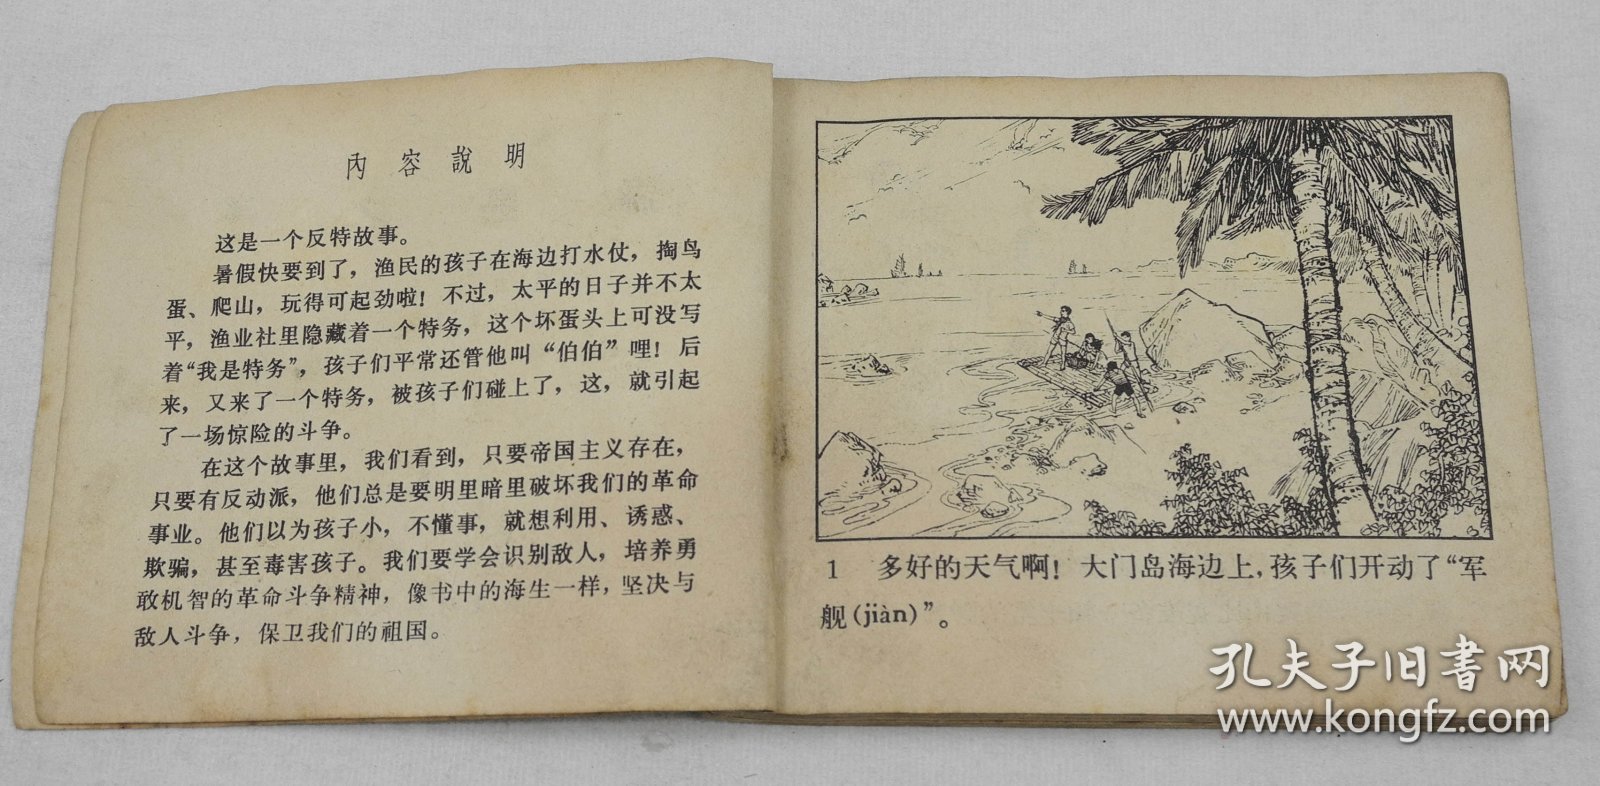 內容說明
这是一个反特故事。
暑假快要到了，渔民的孩子在海边打水仗，掏鸟
蛋、爬山，玩得可起劲啦！不过，太平的日子并不太
平，渔业社里隐藏着一个特务，这个坏蛋头上可没写
着“我是特务”，孩子们平常还管他叫“伯伯”哩！后
来，又来了一个特务，被孩子们碰上了，这，就引起
了一场惊险的斗争。
在这个故事里，我们看到，只要帝国主义存在，
只要有反动派，他们总是要明里暗里破坏我们的革命
事业。他们以为孩子小，不懂事，就想利用、诱惑、
欺骗，甚至毒害孩子。我们要学会识别敌人，培养勇
敢机智的革命斗争精神，像书中的海生一样，坚决与
敌人斗争，保卫我们的祖国。
1 多好的天气啊！大门岛海边上，孩子们开动了“军
舰(jiàn)”。
孔夫子旧書网
www.kongfz.com